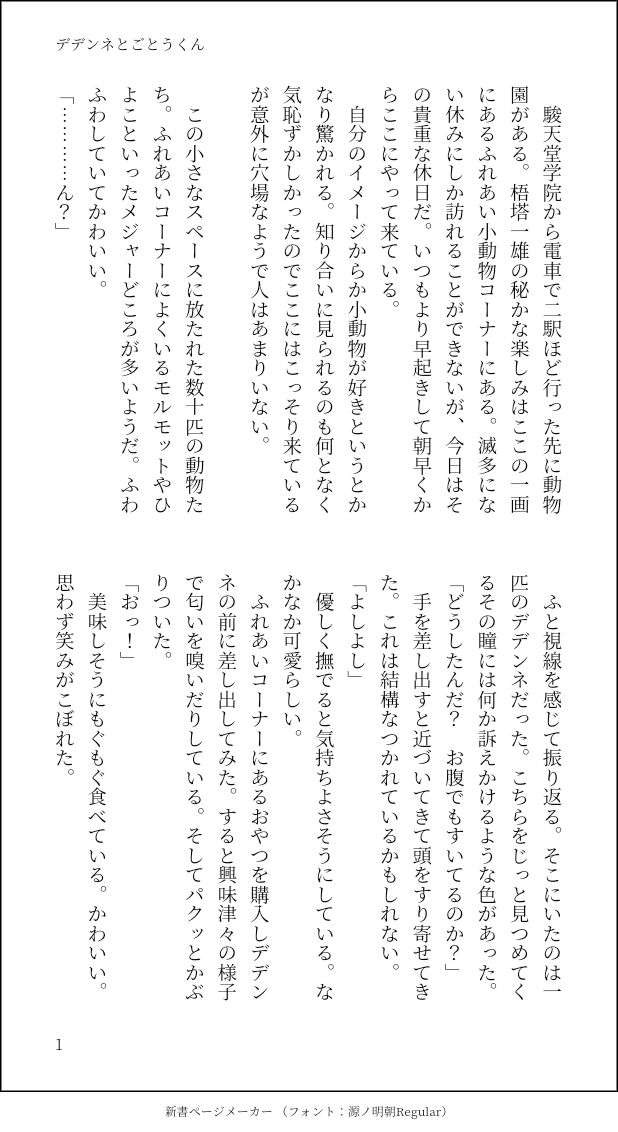 デデンネとごとうくん
　駿天堂学院から電車で二駅ほど行った先に動物
園がある。梧塔一雄の秘かな楽しみはここの一画
にあるふれあい小動物コーナーにある。滅多にな
い休みにしか訪れることができないが、今日はそ
の貴重な休日だ。いつもより早起きして朝早くか
らここにやって来ている。
　自分のイメージからか小動物が好きというとか
なり驚かれる。知り合いに見られるのも何となく
気恥ずかしかったのでここにはこっそり来ている
が意外に穴場なようで人はあまりいない。
　この小さなスペースに放たれた数十匹の動物た
ち。ふれあいコーナーによくいるモルモットやひ
よこといったメジャーどころが多いようだ。ふわ
ふわしていてかわいい。
「…………ん？」
　ふと視線を感じて振り返る。そこにいたのは一
匹のデデンネだった。こちらをじっと見つめてく
るその瞳には何か訴えかけるような色があった。
「どうしたんだ？　お腹でもすいてるのか？」
　手を差し出すと近づいてきて頭をすり寄せてき
た。これは結構なつかれているかもしれない。
「よしよし」
　優しく撫でると気持ちよさそうにしている。な
かなか可愛らしい。
　ふれあいコーナーにあるおやつを購入しデデン
ネの前に差し出してみた。すると興味津々の様子
で匂いを嗅いだりしている。そしてパクッとかぶ
りついた。
「おっ！」
　美味しそうにもぐもぐ食べている。かわいい。
思わず笑みがこぼれた。
1
新書ページメーカー （フォント：源ノ明朝Regular）